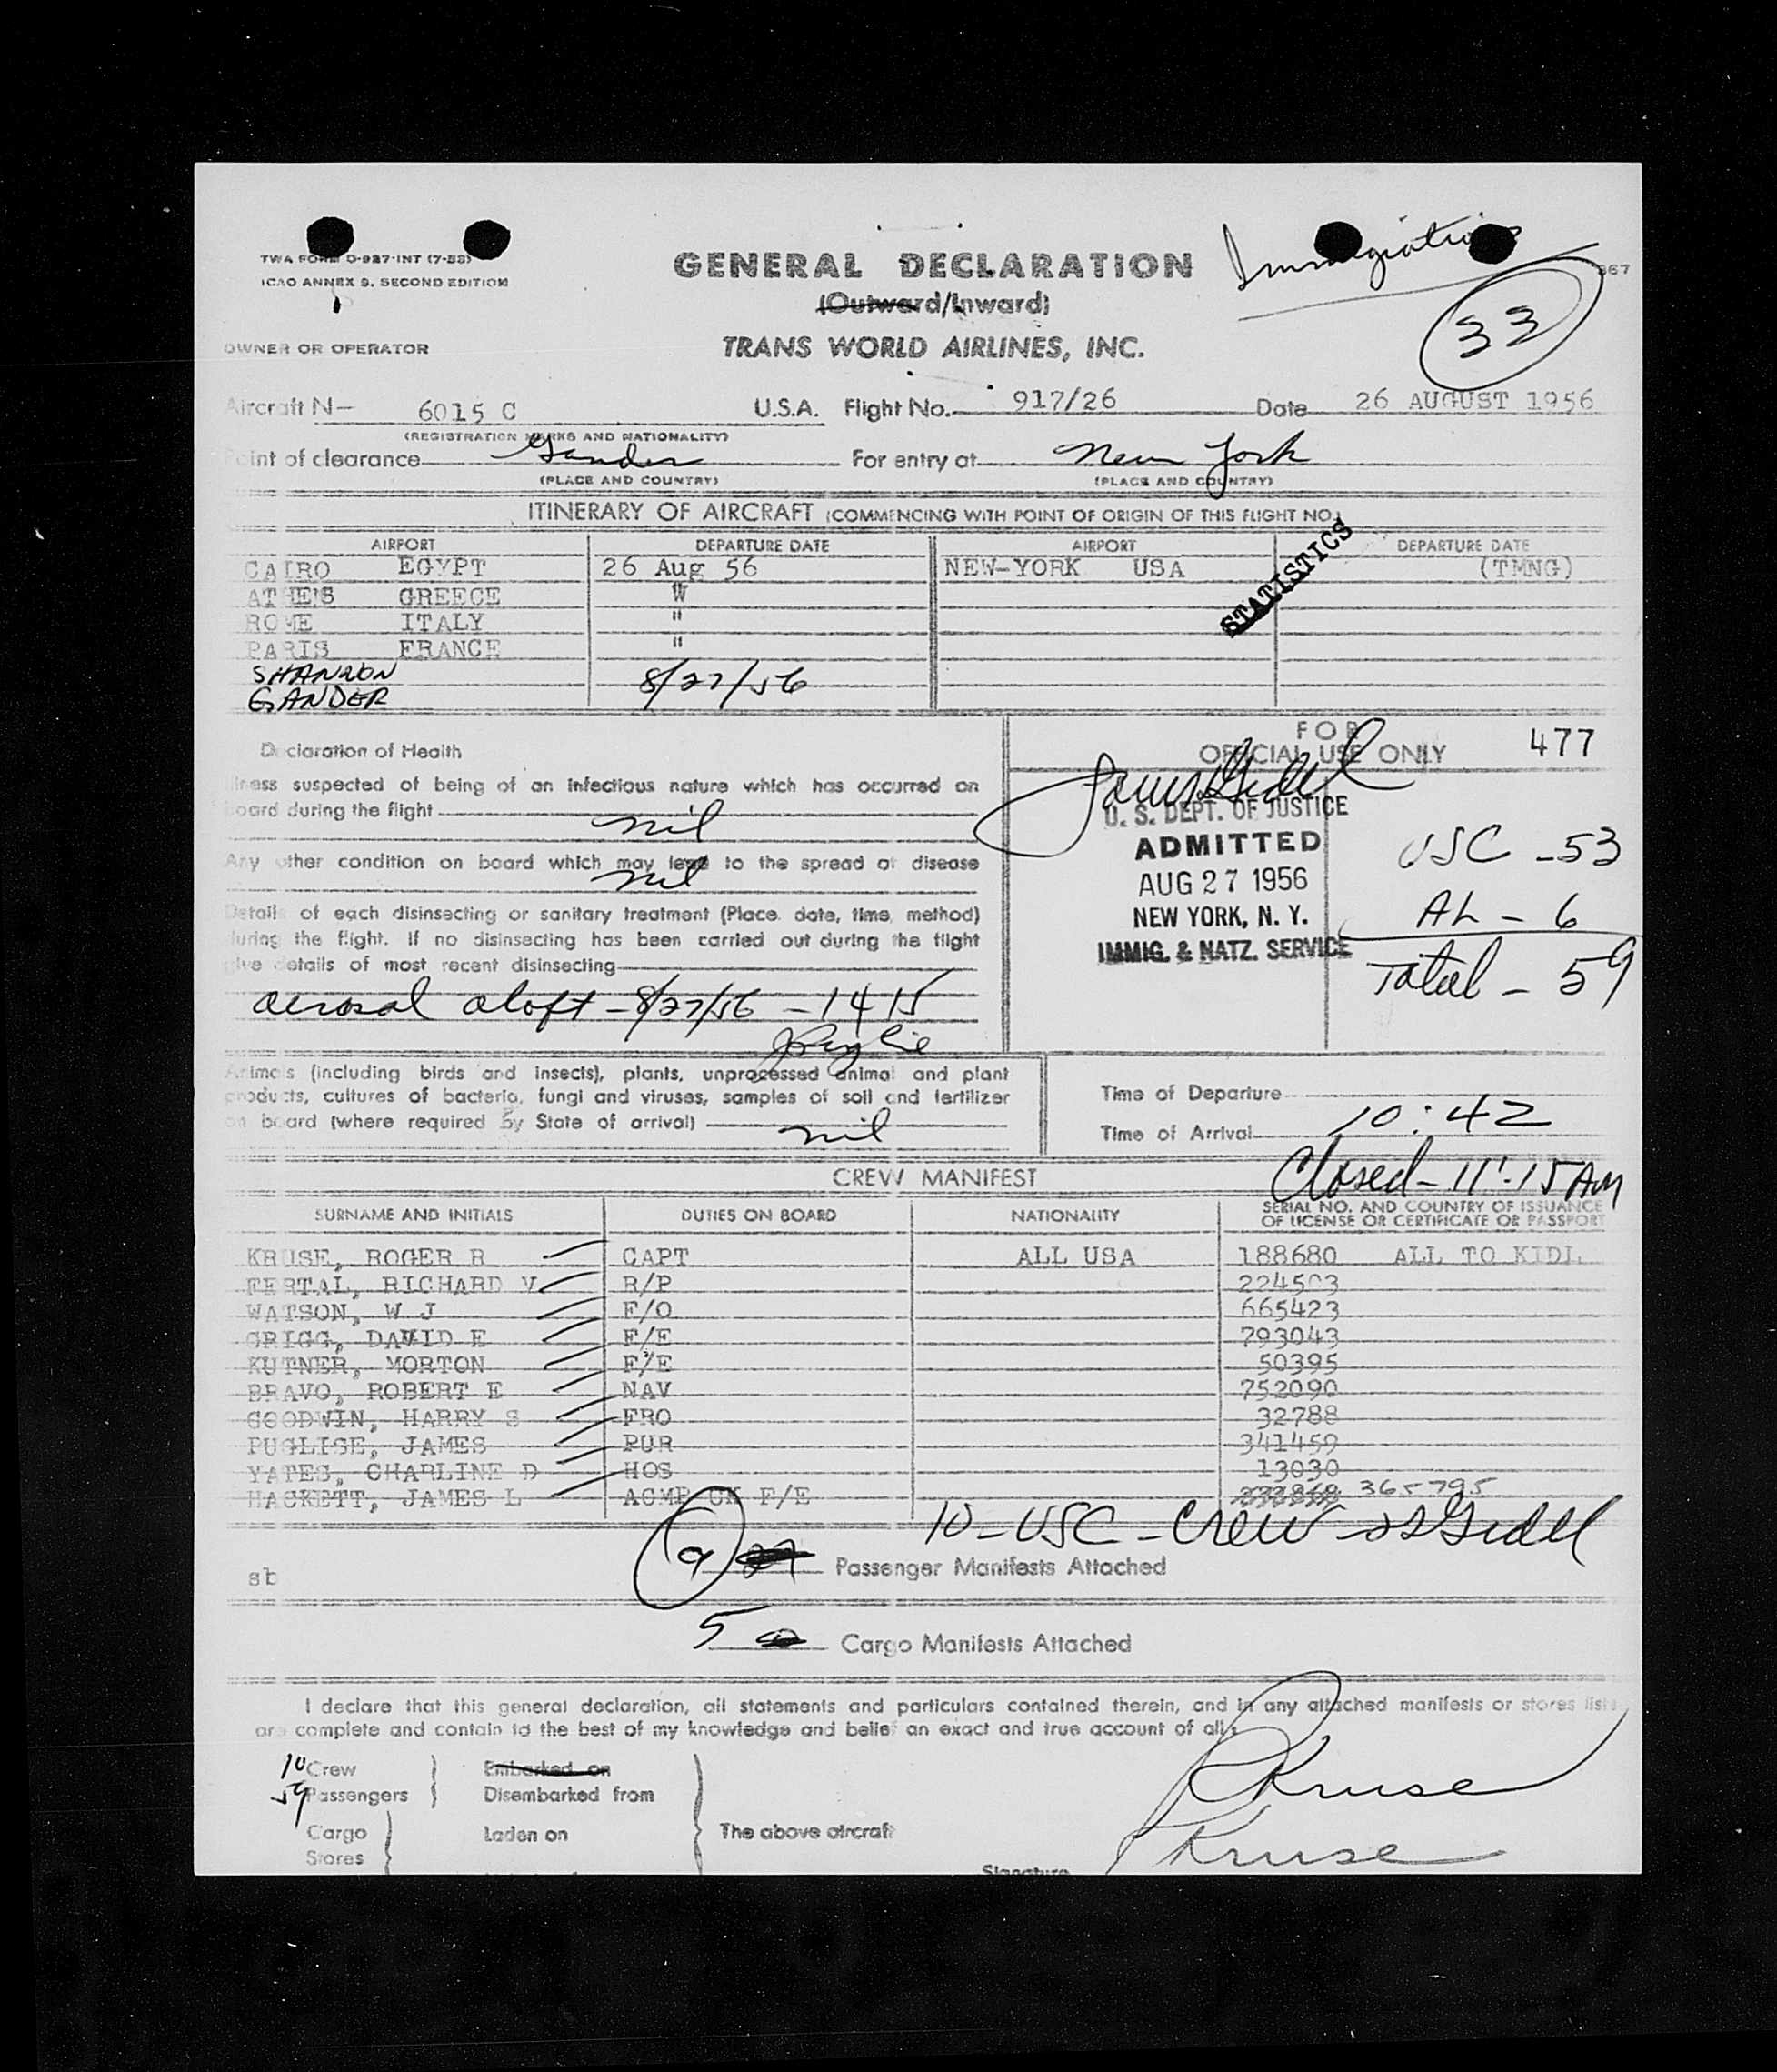 TWA FORM O-927-INT (7-53)
ICAO ANNEX 9. SECOND EDITION
Immigration
GENERAL DECLARATION
(Outward/Inward)
33
OWNER OR OPERATOR
TRANS WORLD AIRLINES, INC.
Aircraft N- 6015 C U.S.A. Flight No. 917/26 Date 26 AUGUST 1956
(REGISTRATION MARKS AND NATIONALITY)
Point of clearance Gander For entry at New York
(PLACE AND COUNTRY) (PLACE AND COUNTRY)
ITINERARY OF AIRCRAFT (COMMENCING WITH POINT OF ORIGIN OF THIS FLIGHT NO.)
STATISTICS
AIRPORT DEPARTURE DATE AIRPORT DEPARTURE DATE
CAIRO EGYPT 26 Aug 56 NEW-YORK USA (TMNG)
ATHENS GREECE "
ROME ITALY "
PARIS FRANCE "
SHANNON 8/27/56
GANDER
FOR
OFFICIAL USE ONLY 477
Declaration of Health
illness suspected of being of an infectious nature which has occurred on
board during the flight nil
Any other condition on board which may lead to the spread of disease
nil
Details of each disinsecting or sanitary treatment (Place, date, time, method)
during the flight. If no disinsecting has been carried out during the flight
give details of most recent disinsecting
aerosol aloft - 8/27/56 - 1415
U. S. DEPT. OF JUSTICE
ADMITTED
AUG 27 1956
NEW YORK, N. Y.
IMMIG. & NATZ. SERVICE
USC - 53
AL - 6
Total - 59
Animals (including birds and insects), plants, unprocessed animal and plant
products, cultures of bacteria, fungi and viruses, samples of soil and fertilizer
on board (where required by State of arrival) nil
Time of Departure
Time of Arrival 10:42
Closed - 11:15 AM
CREW MANIFEST
SURNAME AND INITIALS DUTIES ON BOARD NATIONALITY SERIAL NO. AND COUNTRY OF ISSUANCE
OF LICENSE OR CERTIFICATE OR PASSPORT
KRUSE, ROGER R CAPT ALL USA 188680 ALL TO KIDL
FERTAL, RICHARD V R/P 224503
WATSON, W J F/O 665423
GRIGG, DAVID E F/E 793043
KUTNER, MORTON F/E 50395
BRAVO, ROBERT E NAV 752090
GOODWIN, HARRY S FRO 32788
PUGLISE, JAMES PUR 341459
YATES, CHARLINE D HOS 13030
HACKETT, JAMES L ACMR CK F/E 365795
10 - USC - Crew
9 Passenger Manifests Attached
sb
5 Cargo Manifests Attached
I declare that this general declaration, all statements and particulars contained therein, and in any attached manifests or stores lists
are complete and contain to the best of my knowledge and belief an exact and true account of all:
10 Crew Embarked on
59 Passengers Disembarked from
Cargo Laden on The above aircraft
Stores
Signature
R Kruse
R Kruse